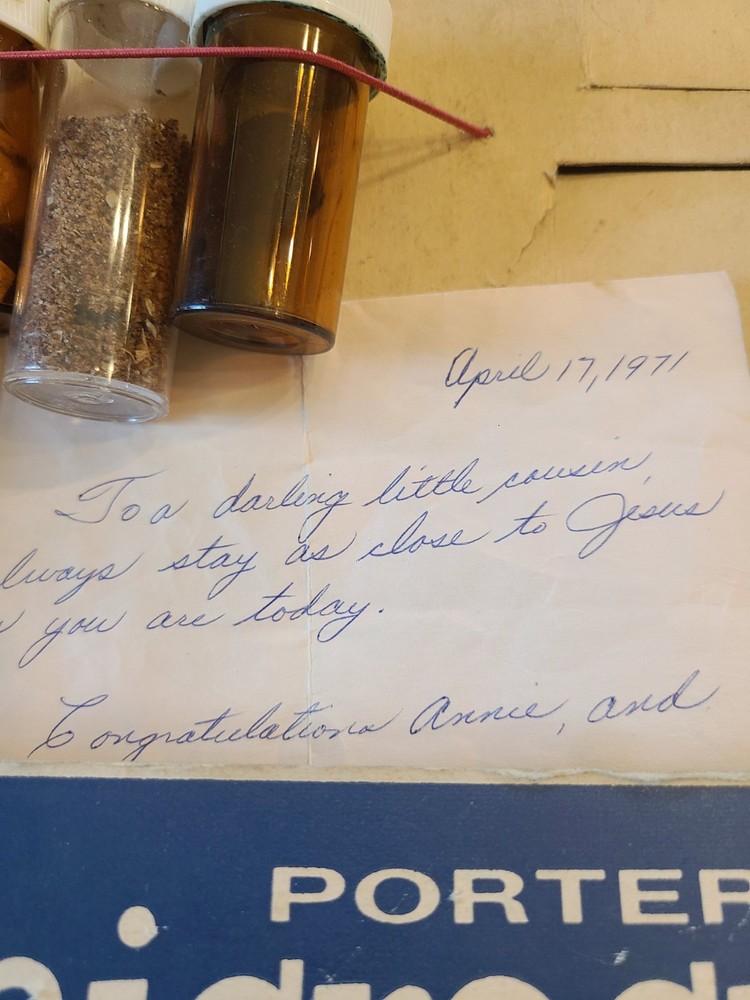 April 17, 1971
To a darling little cousin,
lways stay as close to Jesus
you are today.
Congratulations Annie, and
PORTER